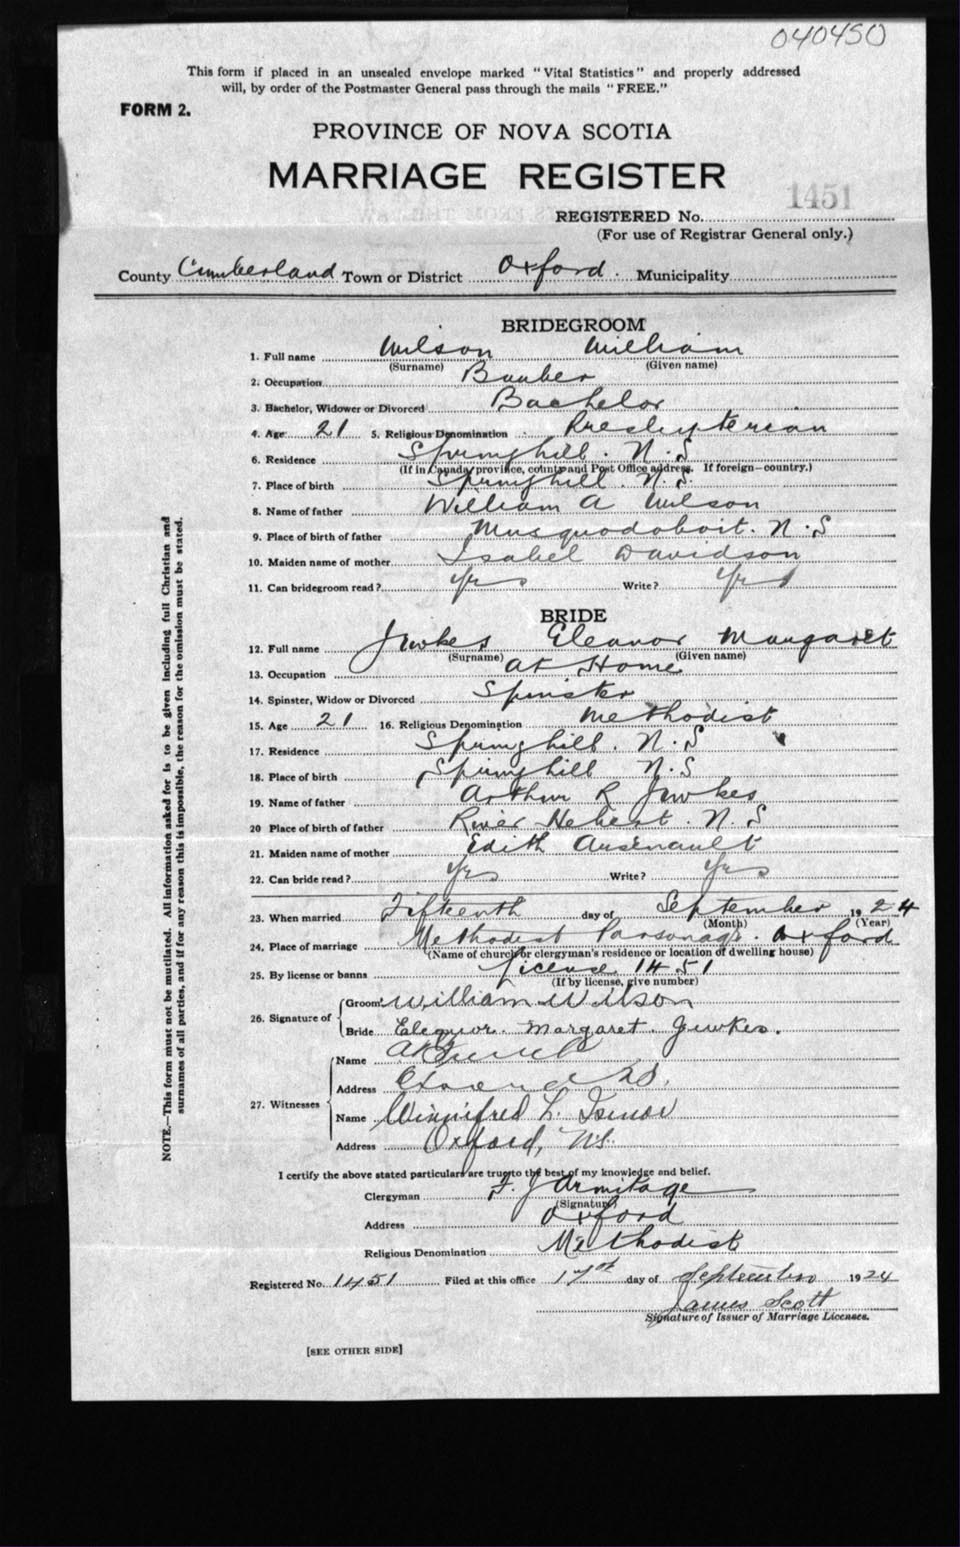 040450
This form if placed in an unsealed envelope marked "Vital Statistics" and properly addressed
will, by order of the Postmaster General pass through the mails "FREE."
FORM 2.
PROVINCE OF NOVA SCOTIA
MARRIAGE REGISTER
1451
REGISTERED No.
(For use of Registrar General only.)
County Cumberland Town or District Oxford. Municipality
BRIDEGROOM
1. Full name Wilson William
(Surname) (Given name)
2. Occupation
3. Bachelor, Widower or Divorced Bachelor
4. Age 21 5. Religious Denomination Presbyterian
6. Residence Springhill. N.S
(If in Canada, province, county and Post Office address. If foreign—country.)
7. Place of birth Springhill. N.S.
8. Name of father William A Wilson
9. Place of birth of father Musquodoboit. N.S
10. Maiden name of mother Isabel Davidson
11. Can bridegroom read? Yes Write? Yes
BRIDE
12. Full name Jewkes Eleanor Margaret
(Surname) (Given name)
13. Occupation At Home
14. Spinster, Widow or Divorced Spinster
15. Age 21 16. Religious Denomination Methodist
17. Residence Springhill. N.S
18. Place of birth Springhill N.S
19. Name of father Arthur R Jewkes
20 Place of birth of father River Hebert. N.S
21. Maiden name of mother Edith Arsenault
22. Can bride read? Yes Write? Yes
23. When married Fifteenth day of September 1924
(Month) (Year)
24. Place of marriage Methodist Parsonage. Oxford
(Name of church or clergyman's residence or location of dwelling house)
25. By license or banns License 1451
(If by license, give number)
26. Signature of Groom William Wilson
Bride Eleanor. Margaret. Jewkes.
27. Witnesses Name
Address
Name Winnifred L.
Address Oxford, NS.
I certify the above stated particulars are true to the best of my knowledge and belief.
Clergyman F. J Armitage
(Signature)
Address Oxford
Religious Denomination Methodist
Registered No. 1451 Filed at this office 17th day of September 1924
James Scott
Signature of Issuer of Marriage Licenses.
[SEE OTHER SIDE]
NOTE.—This form must not be mutilated. All information asked for is to be given including full Christian and
surnames of all parties, and if for any reason this is impossible, the reason for the omission must be stated.